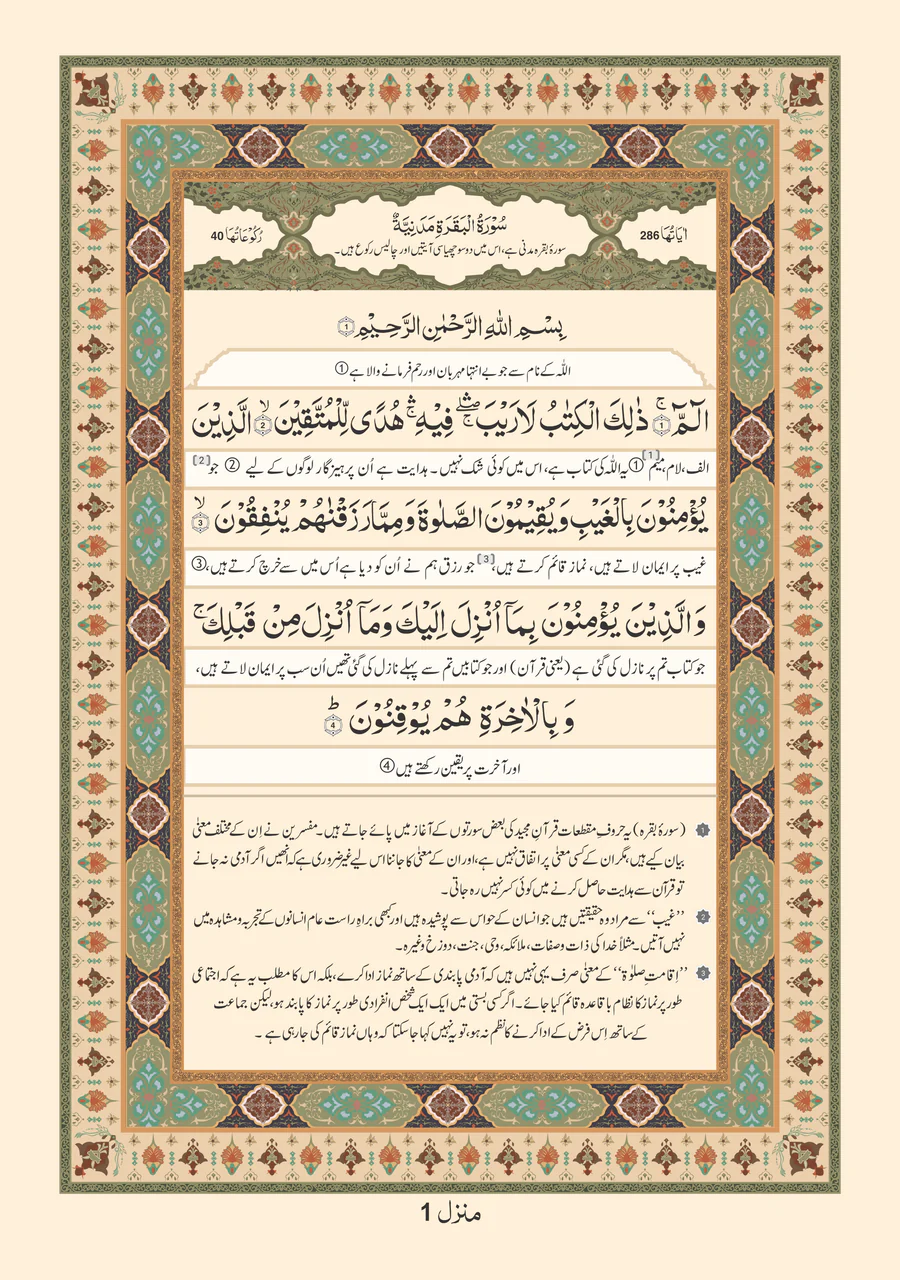 اٰيَاتُهَا 286
سُوْرَةُ الْبَقَرَةِ مَدَنِيَّةٌ
رُكُوْعَاتُهَا 40
سورۂ بقرہ مدنی ہے، اس میں دو سو چھیاسی آیتیں اور چالیس رکوع ہیں۔
بِسْمِ اللّٰهِ الرَّحْمٰنِ الرَّحِيْمِ ۝1
اللّٰہ کے نام سے جو بے انتہا مہربان اور رحم فرمانے والا ہے ①
الٓمّٓ ۚ۝1 ذٰلِكَ الْكِتٰبُ لَا رَيْبَ ۛۖۚ فِيْهِ ۛۚ هُدًى لِّلْمُتَّقِيْنَ ۙ۝2 الَّذِيْنَ
الف، لام، میم[1] ① یہ اللّٰہ کی کتاب ہے، اس میں کوئی شک نہیں۔ ہدایت ہے اُن پرہیزگار لوگوں کے لیے ② جو[2]
يُؤْمِنُوْنَ بِالْغَيْبِ وَيُقِيْمُوْنَ الصَّلٰوةَ وَمِمَّا رَزَقْنٰهُمْ يُنْفِقُوْنَ ۙ۝3
غیب پر ایمان لاتے ہیں، نماز قائم کرتے ہیں،[3] جو رزق ہم نے اُن کو دیا ہے اُس میں سے خرچ کرتے ہیں، ③
وَالَّذِيْنَ يُؤْمِنُوْنَ بِمَآ اُنْزِلَ اِلَيْكَ وَمَآ اُنْزِلَ مِنْ قَبْلِكَ ۚ
جو کتاب تم پر نازل کی گئی ہے (یعنی قرآن) اور جو کتابیں تم سے پہلے نازل کی گئی تھیں اُن سب پر ایمان لاتے ہیں،
وَبِالْاٰخِرَةِ هُمْ يُوْقِنُوْنَ ؕ۝4
اور آخرت پر یقین رکھتے ہیں ④
1 (سورۂ بقرہ) یہ حروفِ مقطعات قرآنِ مجید کی بعض سورتوں کے آغاز میں پائے جاتے ہیں۔ مفسرین نے اِن کے مختلف معنیٰ
بیان کیے ہیں، مگر ان کے کسی معنیٰ پر اتفاق نہیں ہے، اور ان کے معنیٰ کا جاننا اس لیے غیر ضروری ہے کہ انھیں اگر آدمی نہ جانے
تو قرآن سے ہدایت حاصل کرنے میں کوئی کسر نہیں رہ جاتی۔
2 ’’غیب‘‘ سے مراد وہ حقیقتیں ہیں جو انسان کے حواس سے پوشیدہ ہیں اور کبھی براہِ راست عام انسانوں کے تجربہ و مشاہدہ میں
نہیں آتیں۔ مثلاً خدا کی ذات و صفات، ملائکہ، وحی، جنت، دوزخ وغیرہ۔
3 ’’اِقامتِ صلوٰۃ‘‘ کے معنیٰ صرف یہی نہیں ہیں کہ آدمی پابندی کے ساتھ نماز ادا کرے، بلکہ اس کا مطلب یہ ہے کہ اجتماعی
طور پر نماز کا نظام با قاعدہ قائم کیا جائے۔ اگر کسی بستی میں ایک ایک شخص انفرادی طور پر نماز کا پابند ہو، لیکن جماعت
کے ساتھ اِس فرض کے ادا کرنے کا نظم نہ ہو، تو یہ نہیں کہا جاسکتا کہ وہاں نماز قائم کی جارہی ہے ۔
منزل 1